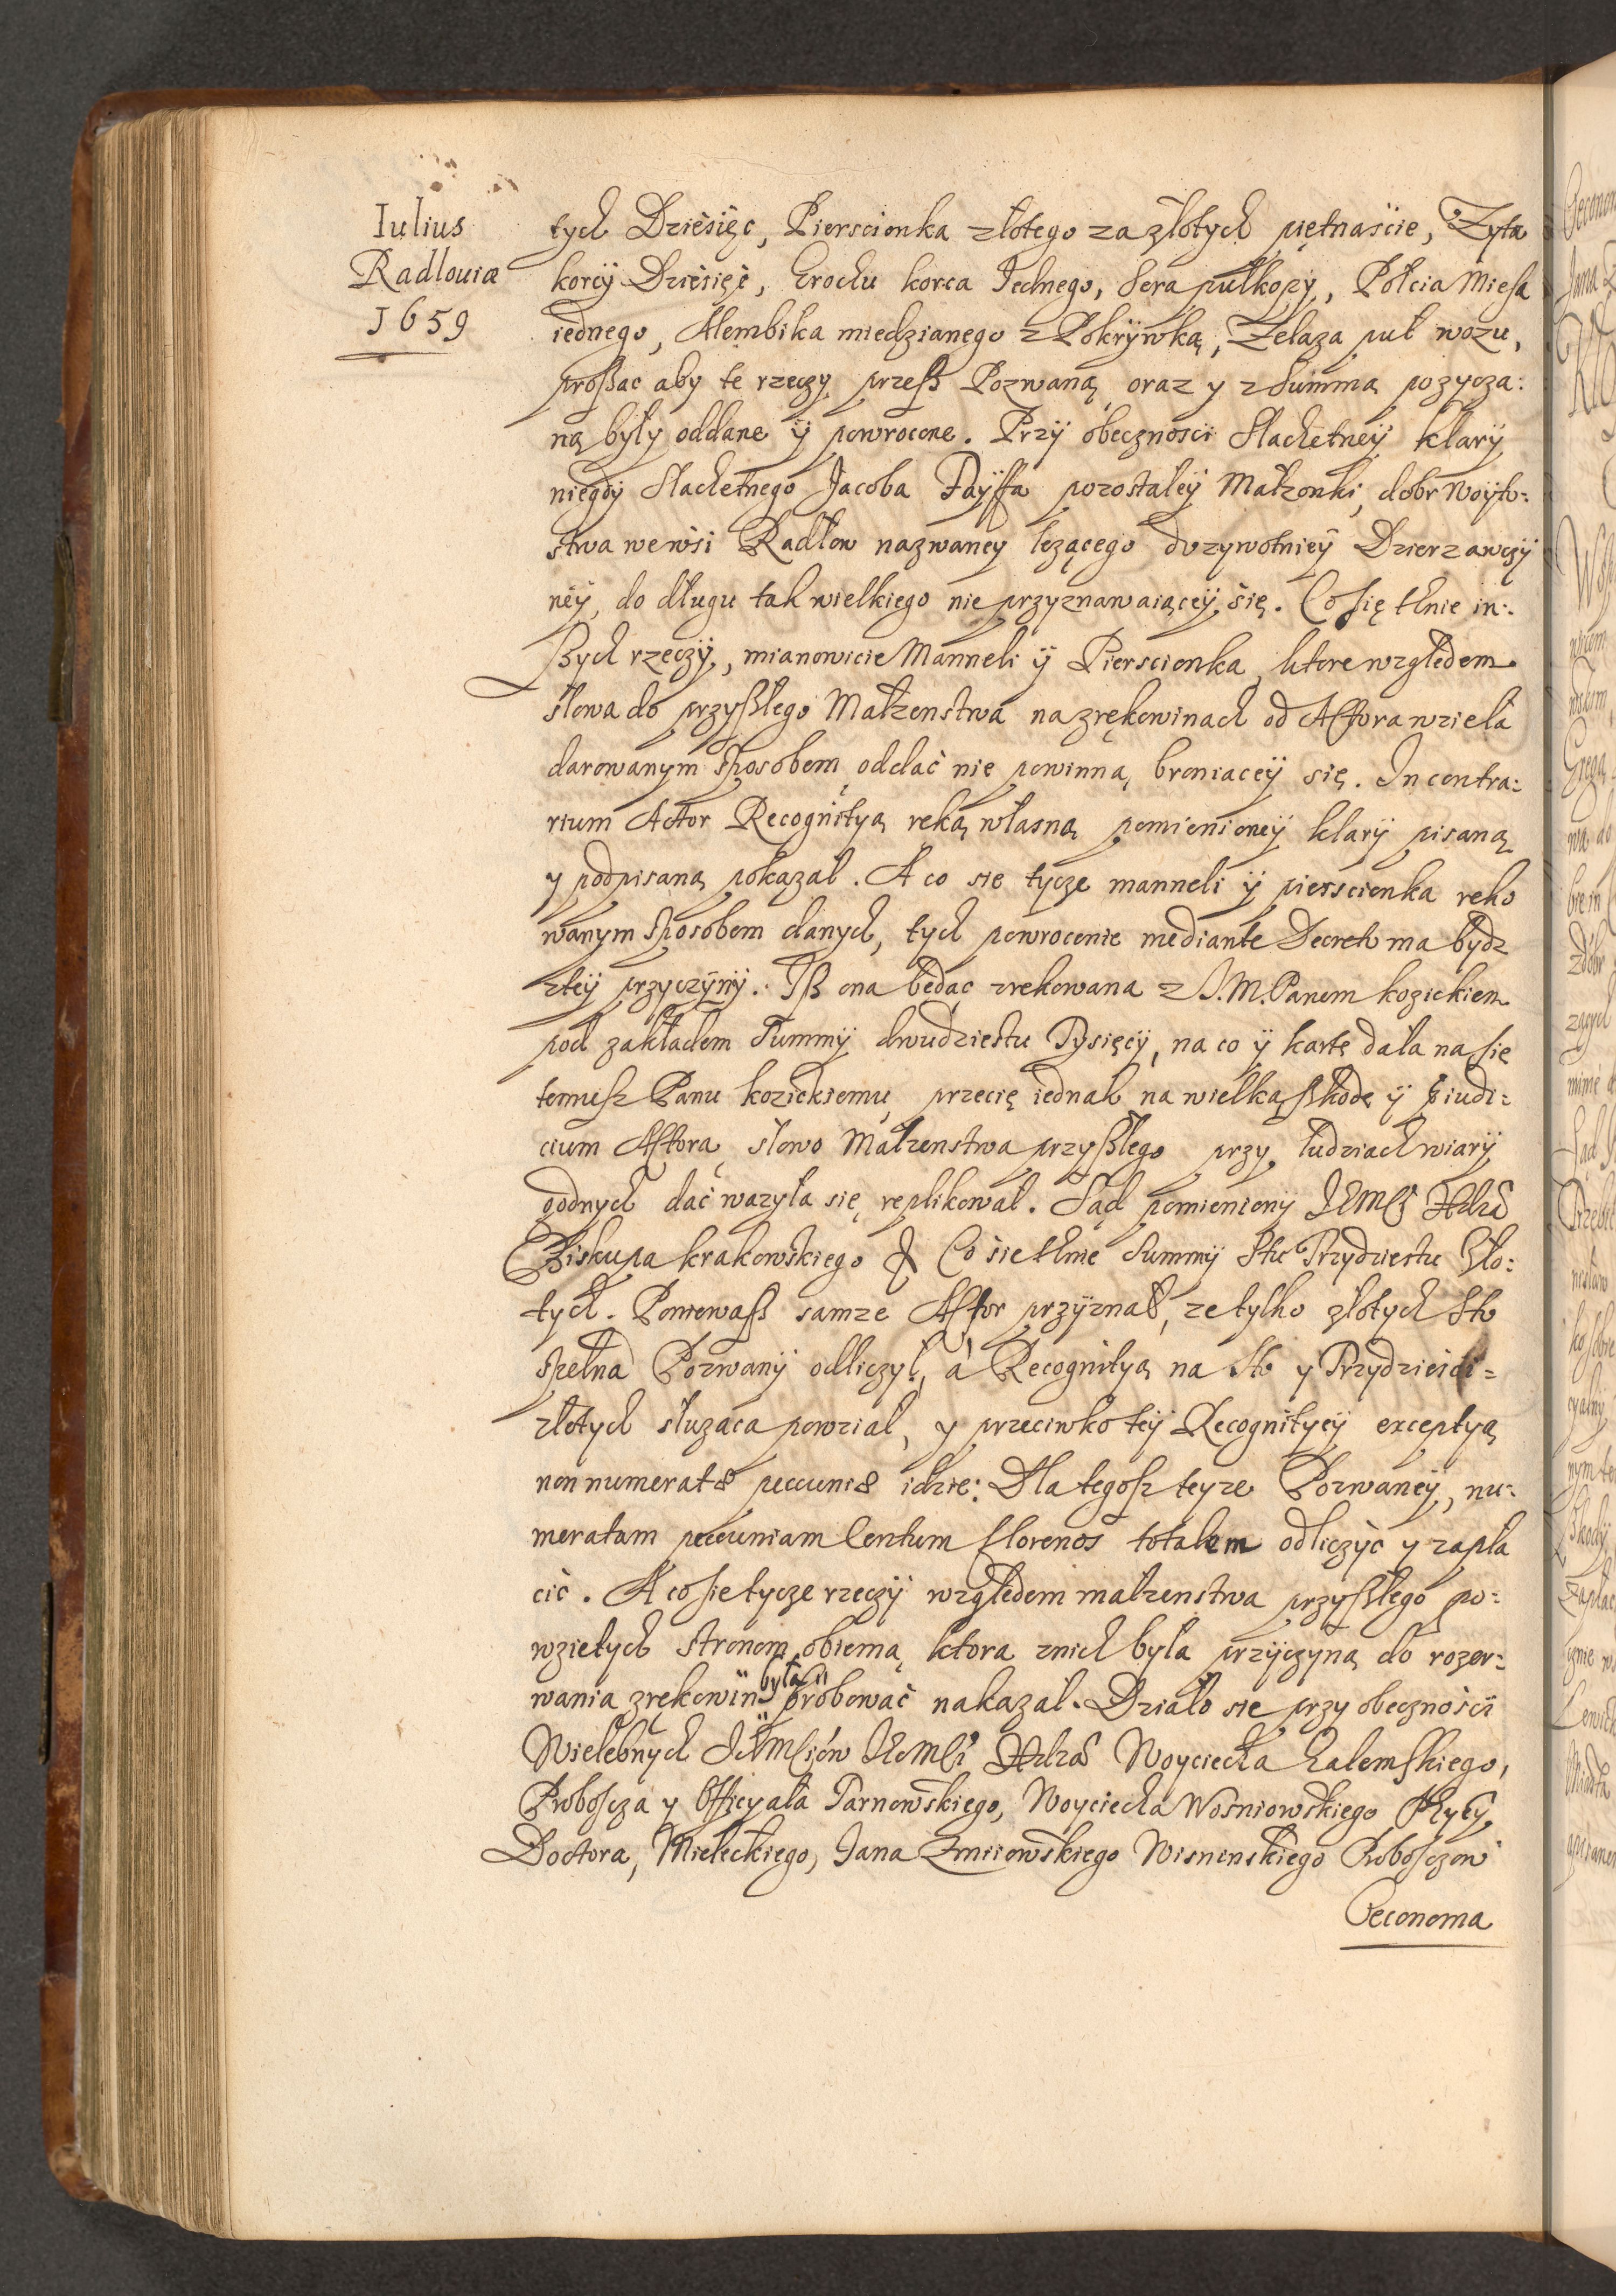 Iulius
Radlouiæ
1659
tych Dzièsięć, Pierscionka złotego za złotych piętnaście, Zyta
korcÿ Dzièsięć, Grochu korca Jednego, Sera pułkopy, Połcia Miesa
iednego, Alembika miedzianego z Pokrÿwką, Zelaza puł wozu,
proßac aby te rzeczy przeß Pozwaną oraz y z Summą pozycza:
ną były oddane ÿ powrocone. Przÿ obecznosci Slachetneÿ klarÿ
niegdÿ Slachetnego Jacoba Fayffa pozostałeÿ Małzonki, dobr Woyto:
stwa we wsi Radłow nazwaney lezącego dozywotnieÿ Dzierzawczÿ
neÿ, do długu tak wielkiego nie przyznawaiąceÿ się. Co się tknie in:
ßych rzeczÿ, mianowicie Manneli ÿ Pierscionka, ktore względem
słowa do przyßłego Małzenstwa na zrękowinach od Actora wzieła
darowanym sposobem oddać nie powinną broniaceÿ się. In contra:
rium Actor Recognitya reką własną pomienioneÿ klarÿ pisaną
y podpisaną pokazał. A co sie tycze manneli ÿ pierscionka reko
wanym sposobem danych, tych powrocenie mediante Decreto ma bydz
zteÿ przyczÿnÿ. Iß ona będąc zrekowana z J. M. Panem kozickiem
pod zakładem Summÿ dwudziestu Tysięcÿ, na co ÿ kartę dała na się
temusz Panu kozickiemu przecię iednak na wielką ßkodę ÿ
cium Actora słowo Małzenstwa przyßłego przy ludziach wiarÿ
godnych dać wazyła się replikował. Sąd pomieniony
Biskupa krakowskiego Co sie tknie Summÿ Stu Trzydziestu Zło:
tych. Poniewaß samze Actor przÿznał, ze tylko złotych Sto
spełna Pozwanÿ odliczył, à Recognitya na Sto y Trzydzieści
złotych słuząca powział, y przeciwko teÿ Recognitycÿ exceptyą
non numeratæ pecuniæ idzie: Dla tegosz teyze Pozwaneÿ, nu:
meratam pecuniam Centum florenos totalem odliczyć y zapła
cić. A co sie tycze rzeczÿ względem małzenstwa przyßłego po:
wzietych stronom obiema, ktora znich była przÿczyną do rozer:
wania zrękowin była probować nakazał. Działo sie przy obecznościi
Wielebnych Woyciecha
Proboscza y Officyała Tarnowskiego, Woyciecha Wosniowskiego
Doctora, Mieleckiego, Jana Zmiiowskiego Wisnenskiego Proboszczow
Oeconoma